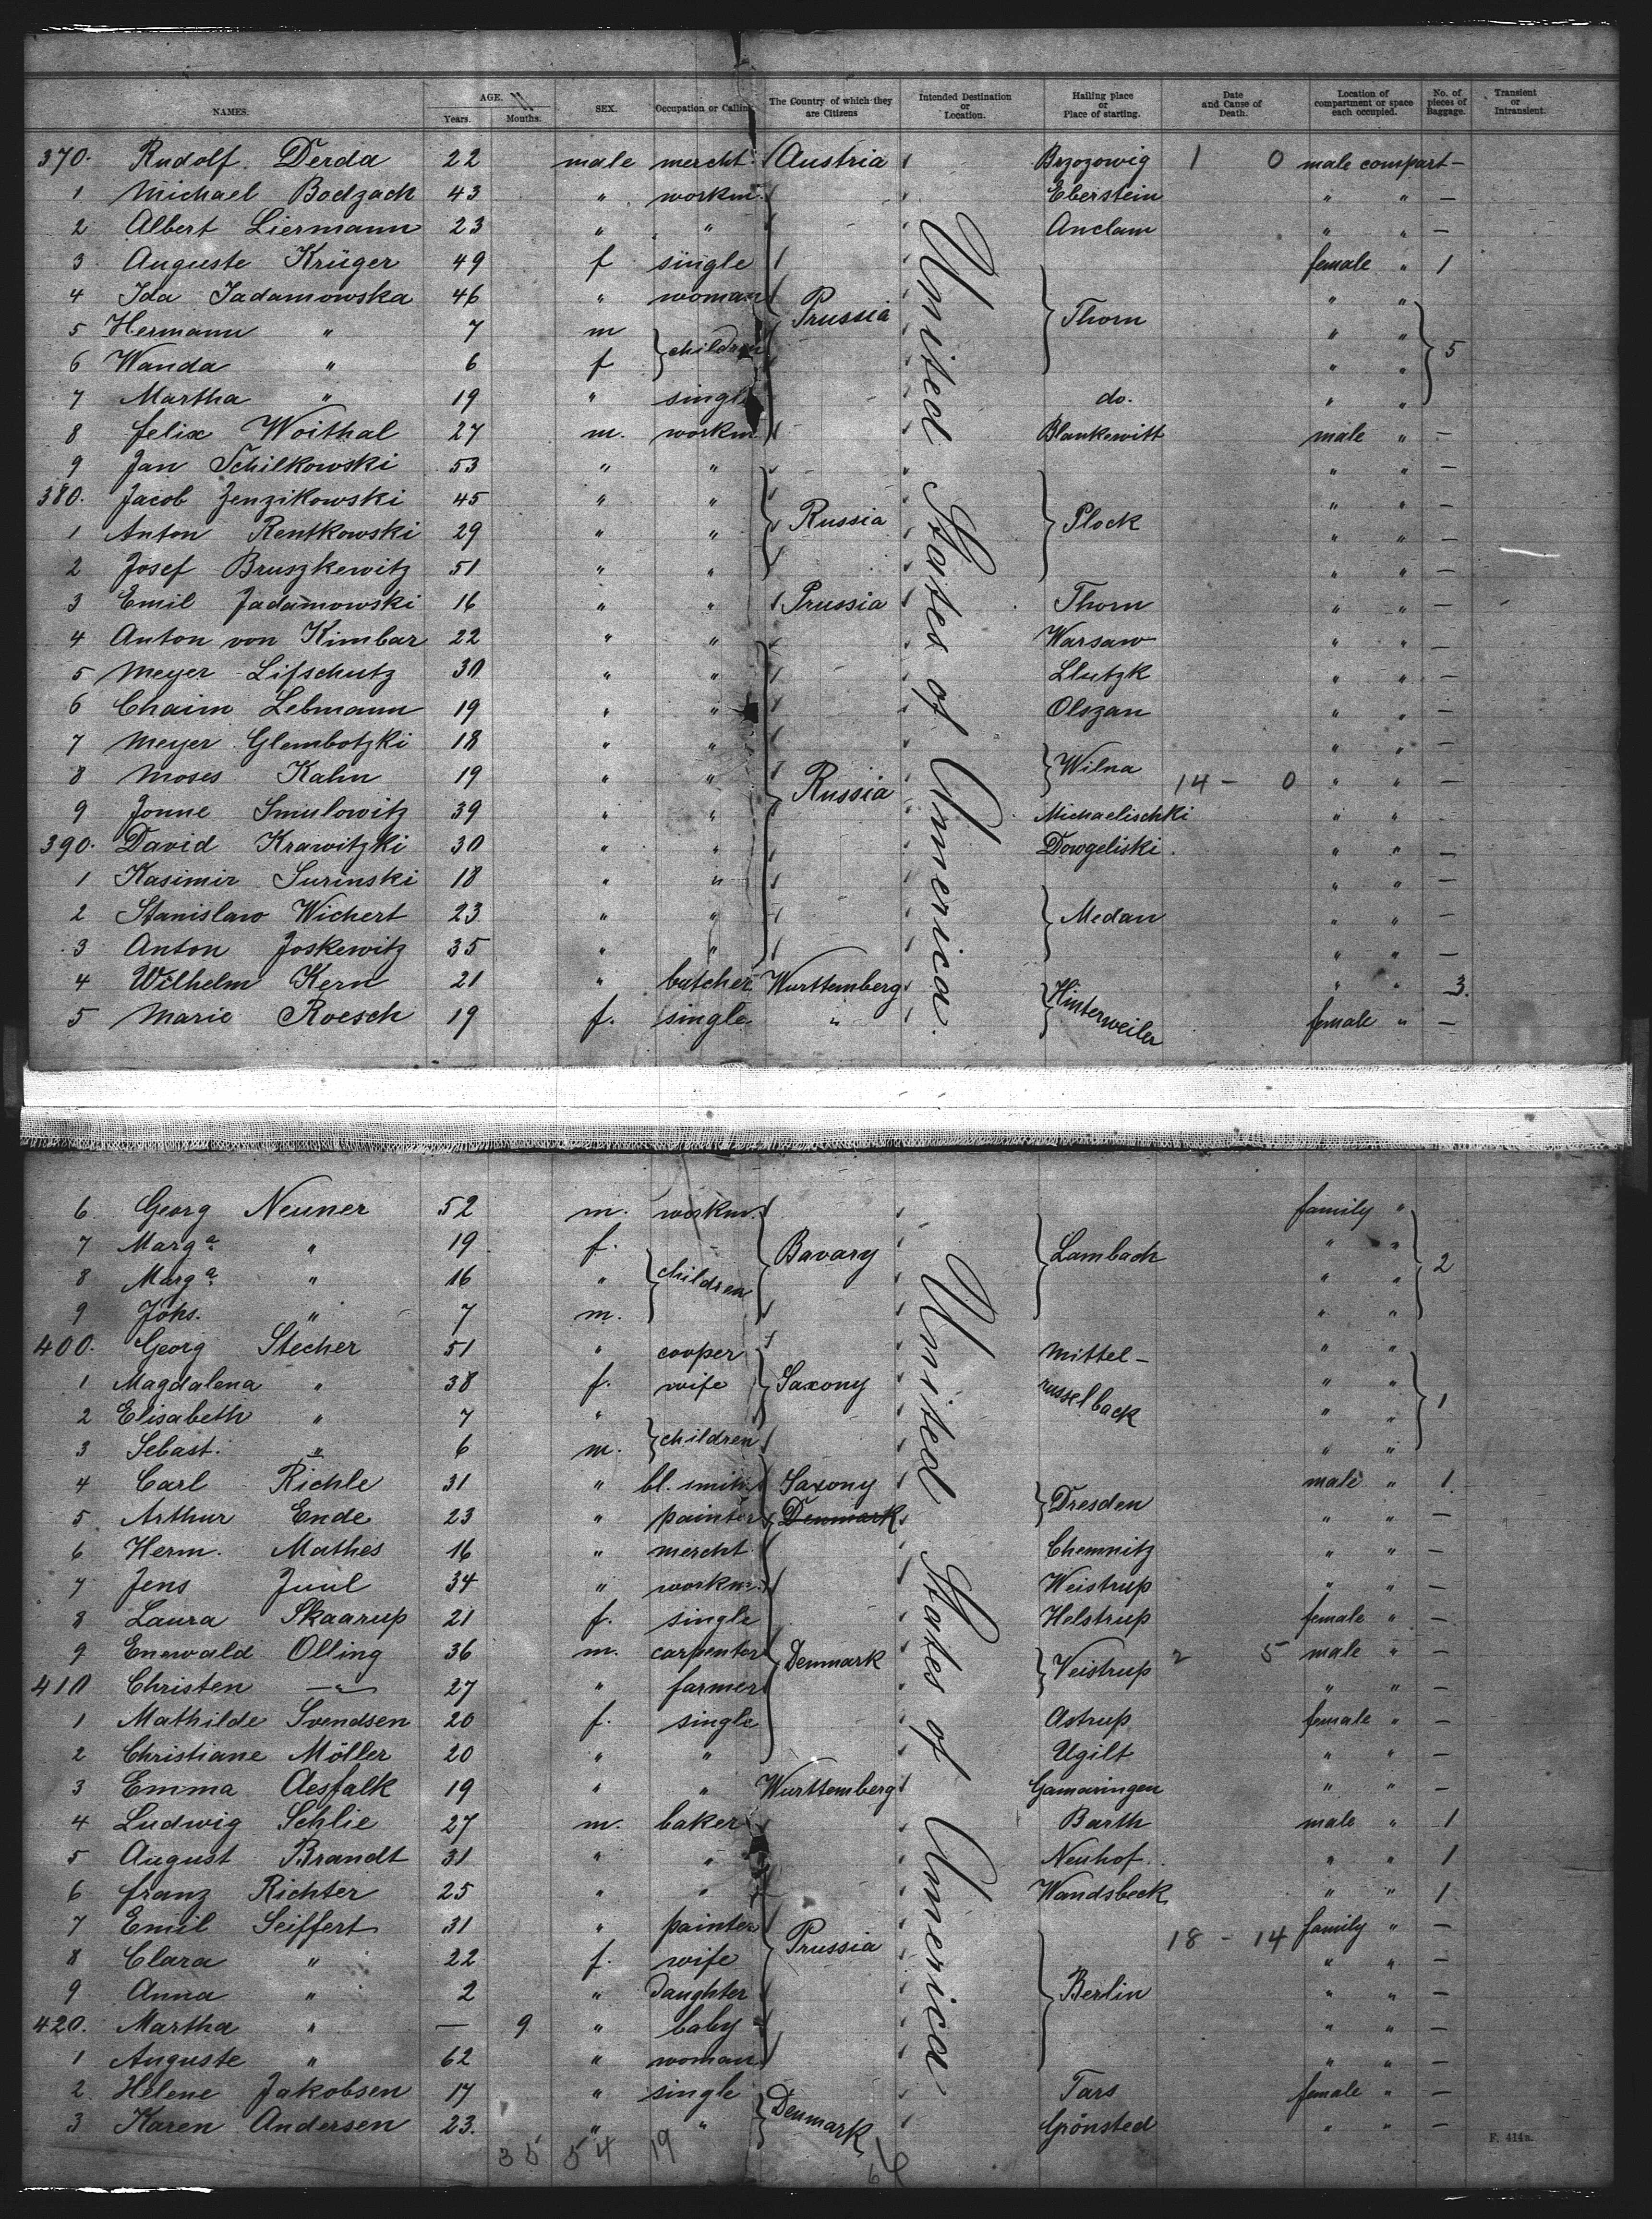 NAMES. AGE. Years. Months. SEX. Occupation or Calling The Country of which they are Citizens Intended Destination or Location. Hailing place or Place of starting. Date and Cause of Death. Location of compartment or space each occupied. No. of pieces of Baggage. Transient or Intransient.
United States of America
370. Rudolf Derda 22 male mercht. Austria Brzozowig 1 0 male compart —
1 Michael Bodzach 43 " workm. Eberstein " " —
2 Albert Liermann 23 " " Anclam " " —
3 Auguste Krüger 49 f single female " 1
4 Ida Jadamowska 46 " woman Prussia Thorn " "
5 Hermann " 7 m children " " 5
6 Wanda " 6 f " "
7 Martha " 19 " single do. " "
8 Felix Woithal 27 m. workm. Blankewitt male " —
9 Jan Schilkowski 53 " " " " —
380. Jacob Zenzikowski 45 " " Russia Plock " " —
1 Anton Rentkowski 29 " " " " —
2 Josef Bruszkewitz 51 " " " " —
3 Emil Jadamowski 16 " " Prussia Thorn " " —
4 Anton von Kimbar 22 " " Warsaw " " —
5 Meyer Lifschutz 30 " " Llutzk " " —
6 Chaim Lebmann 19 " " Olszan " " —
7 Meyer Glembotzki 18 " " Wilna " " —
8 Moses Kahn 19 " " Russia 14 — 0 " " —
9 Jonne Smulowitz 39 " " Michaelischki " " —
390. David Krawitzki 30 " " Dowgeliski " " —
1 Kasimir Surinski 18 " " " " —
2 Stanislaw Wichert 23 " " Medan " " —
3 Anton Joskewitz 35 " " " " —
4 Wilhelm Kern 21 " butcher Wurttemberg Hinterweiler " " 3.
5 Marie Roesch 19 f. single " female " —
United States of America
6 Georg Neuner 52 m. workm. family "
7 Marga. " 19 f. children Bavary Lambach " " 2
8 Marga. " 16 " " "
9 Johs. " 7 m. " "
400. Georg Stecher 51 " cooper Mittel- " "
1 Magdalena " 38 f. wife Saxony russelback " " 1
2 Elisabeth " 7 " children " "
3 Sebast. " 6 m. " "
4 Carl Richle 31 " bl. smith Saxony Dresden male " 1
5 Arthur Ende 23 " painter Denmark " " —
6 Herm. Mathes 16 " mercht. Chemnitz " " —
7 Jens Juul 34 " workm. Weistrup " " —
8 Laura Skaarup 21 f. single Helstrup female " —
9 Enewald Olling 36 m. carpenter Denmark Veistrup 2 5 male " —
410 Christen —"— 27 " farmer " " —
1 Mathilde Svendsen 20 f. single Astrup female " —
2 Christiane Möller 20 " " Ugilt " " —
3 Emma Aesfalk 19 " " Wurttemberg Gamaringen " " —
4 Ludwig Schlie 27 m. baker Barth male " 1
5 August Brandt 31 " " Neuhof " " 1
6 Franz Richter 25 " " Wandsbeck " " 1
7 Emil Seiffert 31 " painter Prussia Berlin 18 - 14 family " —
8 Clara " 22 f. wife " " —
9 Anna " 2 " Daughter " " —
420. Martha " — 9 " baby " " —
1 Auguste " 62 " woman " " —
2. Helene Jakobsen 17 " single Denmark Tars female " —
3 Karen Andersen 23. " " Grönsted " " —
35 54 19
F. 414a.